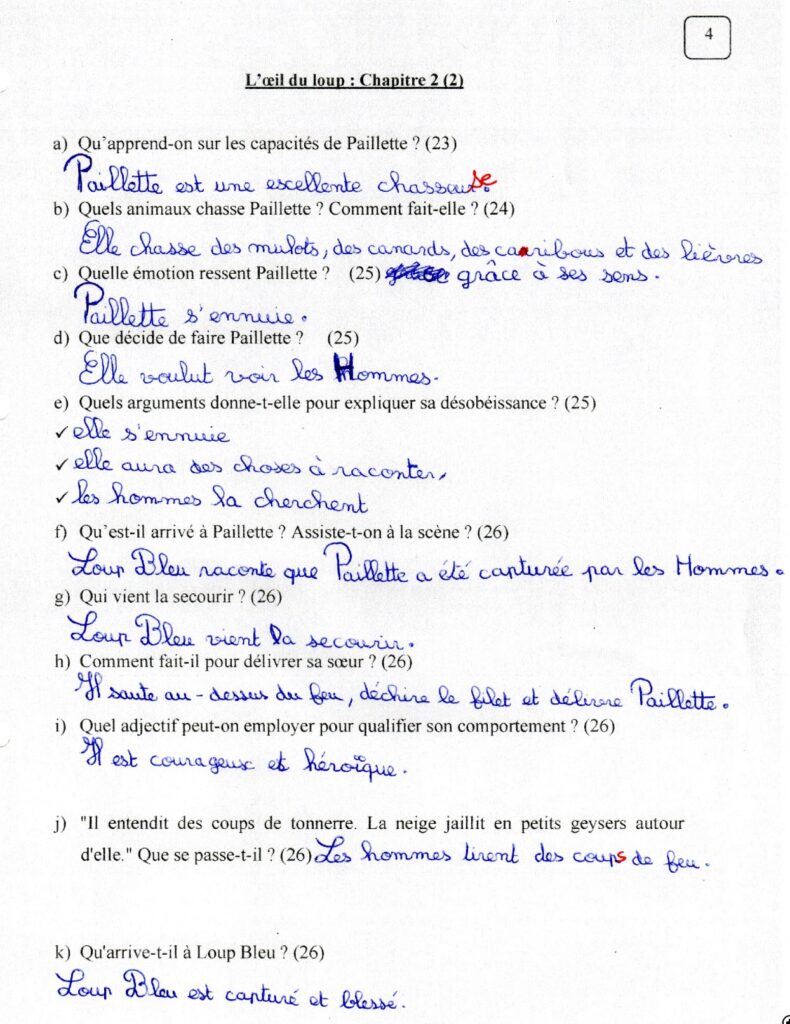 4
L'œil du loup : Chapitre 2 (2)
a) Qu'apprend-on sur les capacités de Paillette ? (23)
Paillette est une escellente chasseuse.
b) Quels animaux chasse Paillette ? Comment fait-elle ? (24)
Elle chasse des mulots, des canards, des caribous et des lièvres
c) Quelle émotion ressent Paillette ? (25) grâce à ses sens.
Paillette s'ennuie.
d) Que décide de faire Paillette ? (25)
Elle voulut voir les Hommes.
e) Quels arguments donne-t-elle pour expliquer sa désobéissance ? (25)
✓ elle s'ennuie
✓ elle aura des choses à raconter,
✓ les hommes la cherchent
f) Qu'est-il arrivé à Paillette ? Assiste-t-on à la scène ? (26)
Loup Bleu raconte que Paillette a été capturée par les Hommes.
g) Qui vient la secourir ? (26)
Loup Bleu vient la secourir.
h) Comment fait-il pour délivrer sa sœur ? (26)
Il saute au-dessus du feu, déchire le filet et délivre Paillette.
i) Quel adjectif peut-on employer pour qualifier son comportement ? (26)
Il est courageux et héroïque.
j) "Il entendit des coups de tonnerre. La neige jaillit en petits geysers autour
d'elle." Que se passe-t-il ? (26) Les hommes tirent des coups de feu.
k) Qu'arrive-t-il à Loup Bleu ? (26)
Loup Bleu est capturé et blessé.